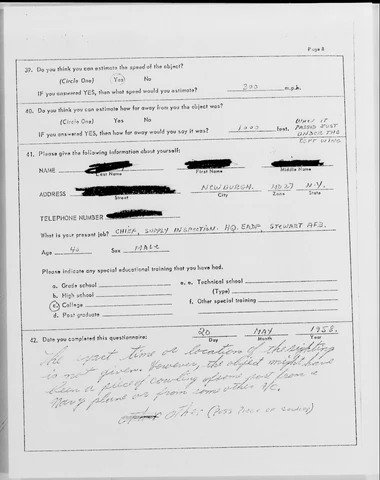 Page 8
39. Do you think you can estimate the speed of the object?
(Circle One) Yes No
IF you answered YES, then what speed would you estimate? 300 m.p.h.
40. Do you think you can estimate how far away from you the object was?
(Circle One) Yes No
IF you answered YES, then how far away would you say it was? 1000 feet. WHEN IT
PASSED JUST
UNDER THE
LEFT WING
41. Please give the following information about yourself:
NAME
Last Name First Name Middle Name
ADDRESS NEWBURGH. N.Y.
Street City Zone State
TELEPHONE NUMBER
What is your present job? CHIEF, SUPPLY INSPECTION. HQ. EADF, STEWART AFB.
Age 40 Sex MALE
Please indicate any special educational training that you have had.
a. Grade school e. Technical school
b. High school (Type)
c. College f. Other special training
d. Post graduate
42. Date you completed this questionnaire: 20 MAY 1958.
Day Month Year
The exact time or location of the sighting
is not given. However, the object might have
been a piece of cowling of some sort from a
Navy plane or from some other a/c.
other (Piss Piece of cowling)